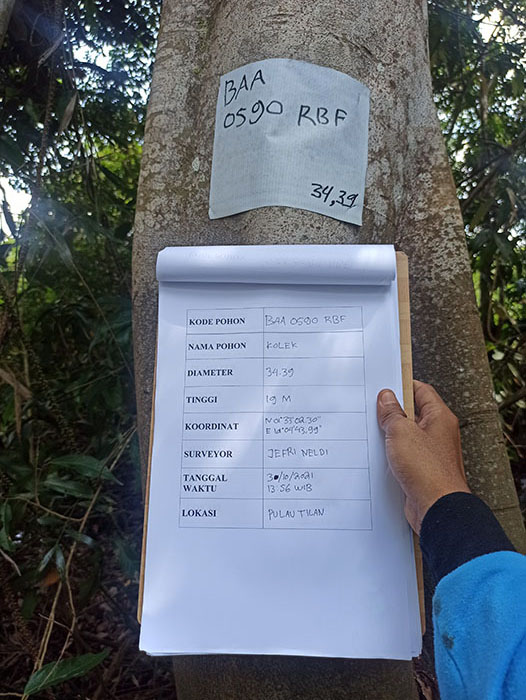 BAA
0590 RBF
34,39
KODE POHON BAA 0590 RBF
NAMA POHON KOLEK
DIAMETER 34.39
TINGGI 19 M
KOORDINAT
SURVEYOR JEFRI NELDI
TANGGAL WAKTU /10/2021
13:56 WIB
LOKASI PULAU TILAN